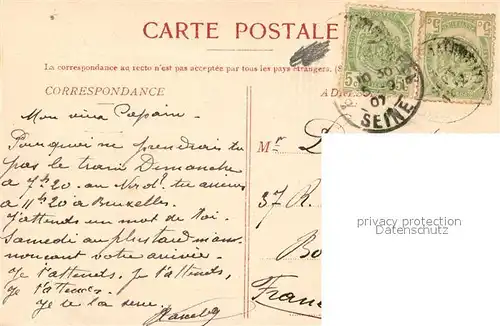 CARTE POSTALE
La correspondance au recto n'est pas acceptée par tous les pays étrangers. (S
CORRESPONDANCE
Mon vieux Copain.
Pourquoi ne prendrais tu
pas le train Dimanche
à 7h20. au Nord. tu
à 11h20 à Bruxelles.
J'attends un mot de toi.
Samedi au plus tard m'an-
nonçant votre arrivée.
Je t'attends, je t'attends,
je t'attends.
Je te la serre.
5
5
10 30
07
SEINE
AD
Mr
37 R
Bo
Fran
privacy protection
Datenschutz